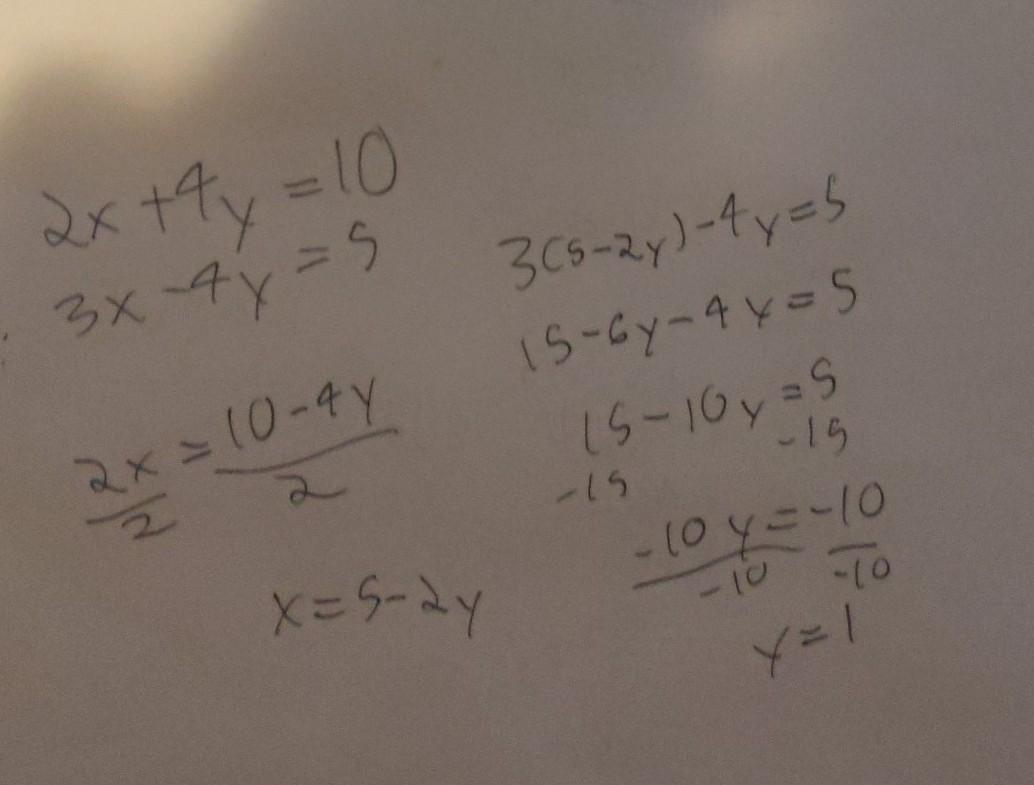 2x+4y=10
3x-4y=5
2x/2 = (10-4y)/2
x=5-2y
3(5-2y)-4y=5
15-6y-4y=5
15-10y=5
-15 -15
-10y/-10 = -10/-10
y=1